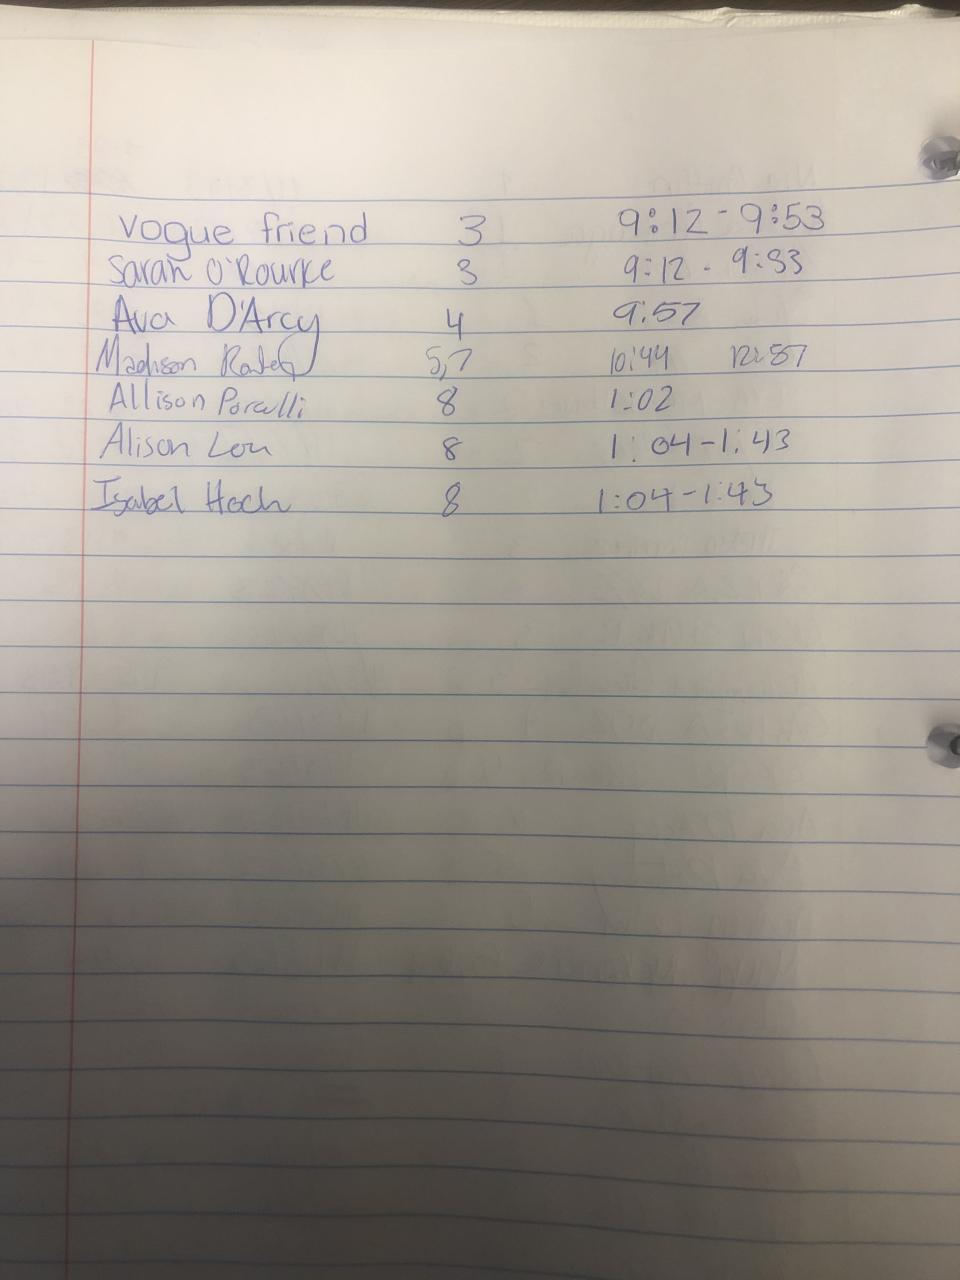 Vogue friend 3 9:12 - 9:53
Sarah O'Rourke 3 9:12 - 9:53
Ava D'Arcy 4 9:57
Madison 5,7 10:44 12:57
Allison Porcelli 8 1:02
Alison Lou 8 1:04-1:43
Isabel Hoch 8 1:04-1:43